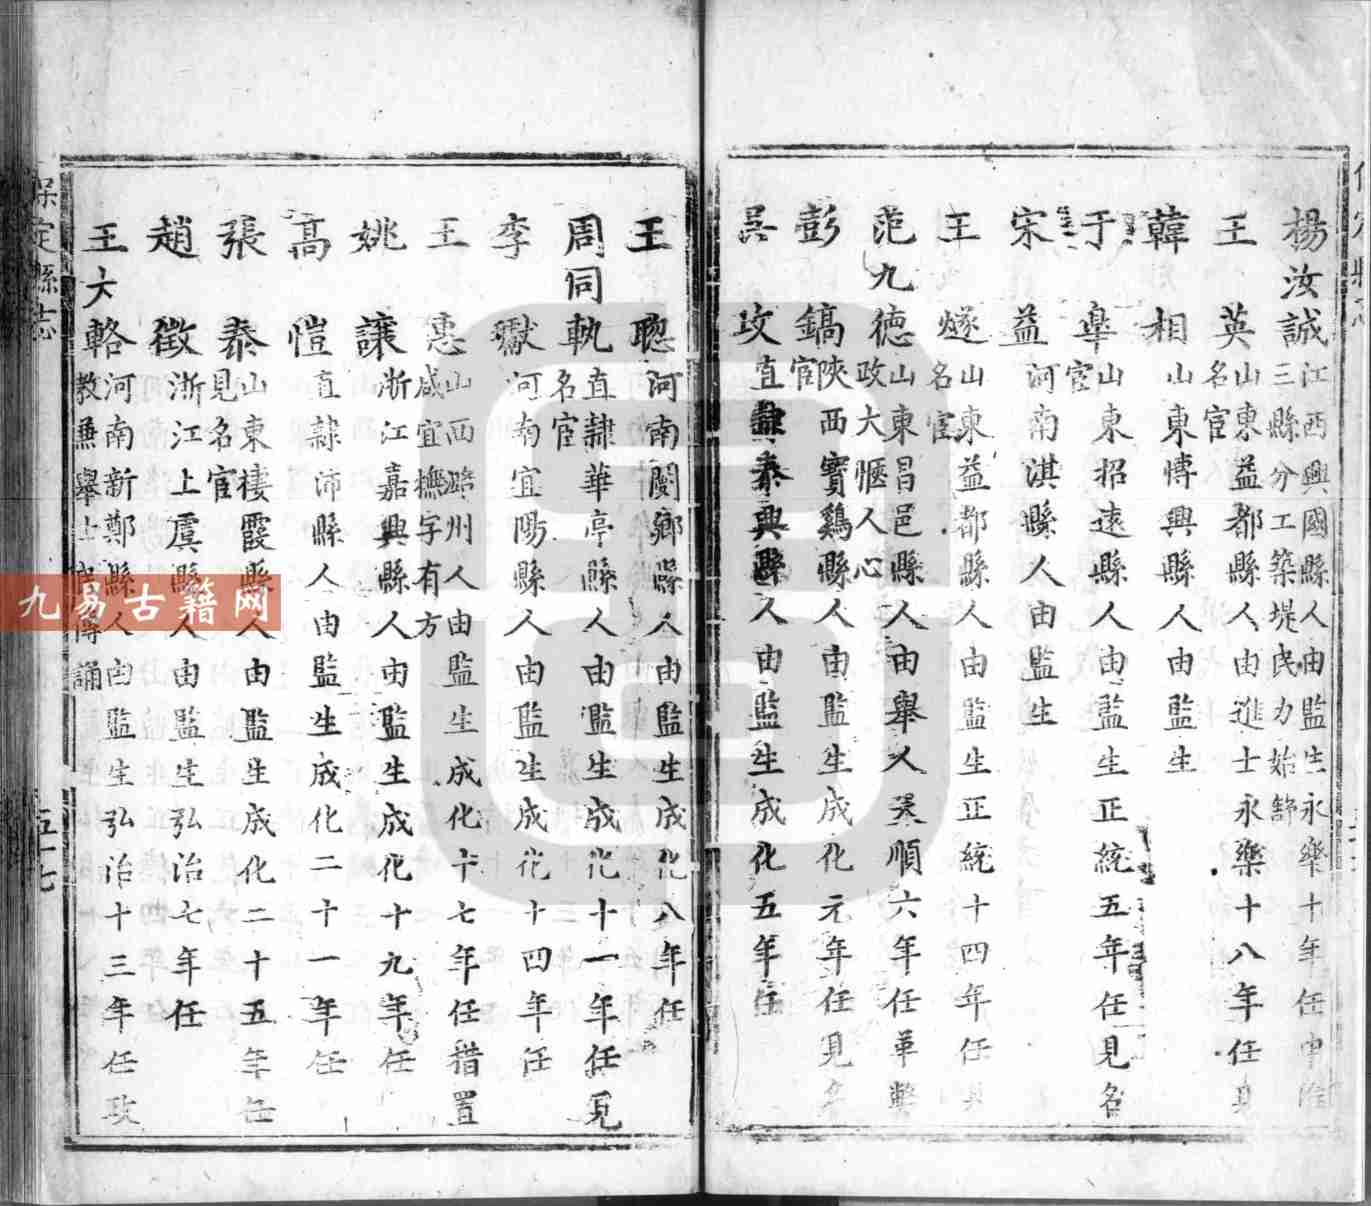 楊汝誠江西興國縣人由監生永樂十年任申准
三縣分工築堤民力始舒
王英山東益都縣人由進士永樂十八年任見
名宦
韓相山東博興縣人由監生
于皐山東招遠縣人由監生正統五年任見名
宦
宋益河南淇縣人由監生
王燧山東益都縣人由監生正統十四年任見
名宦
范九德山東昌邑縣人由舉人天順六年任革弊
政大愜人心
彭鎬陝西寶鷄縣人由監生成化元年任見名
宦
吳玫直隸泰興縣人由監生成化五年任
王聰河南閿鄉縣人由監生成化八年任
周同軌直隸華亭縣人由監生成化十一年任見
名宦
李獻河南宜陽縣人由監生成化十四年任
王惠山西潞州人由監生成化十七年任措置
咸宜撫字有方
姚讓浙江嘉興縣人由監生成化十九年任
高愷直隸沛縣人由監生成化二十一年任
張泰山東棲霞縣人由監生成化二十五年任
見名宦
趙徵浙江上虞縣人由監生弘治七年任
王大輅河南新鄭縣人由監生弘治十三年任政
教兼舉士民傳誦
保定縣志
五十七
九易古籍网